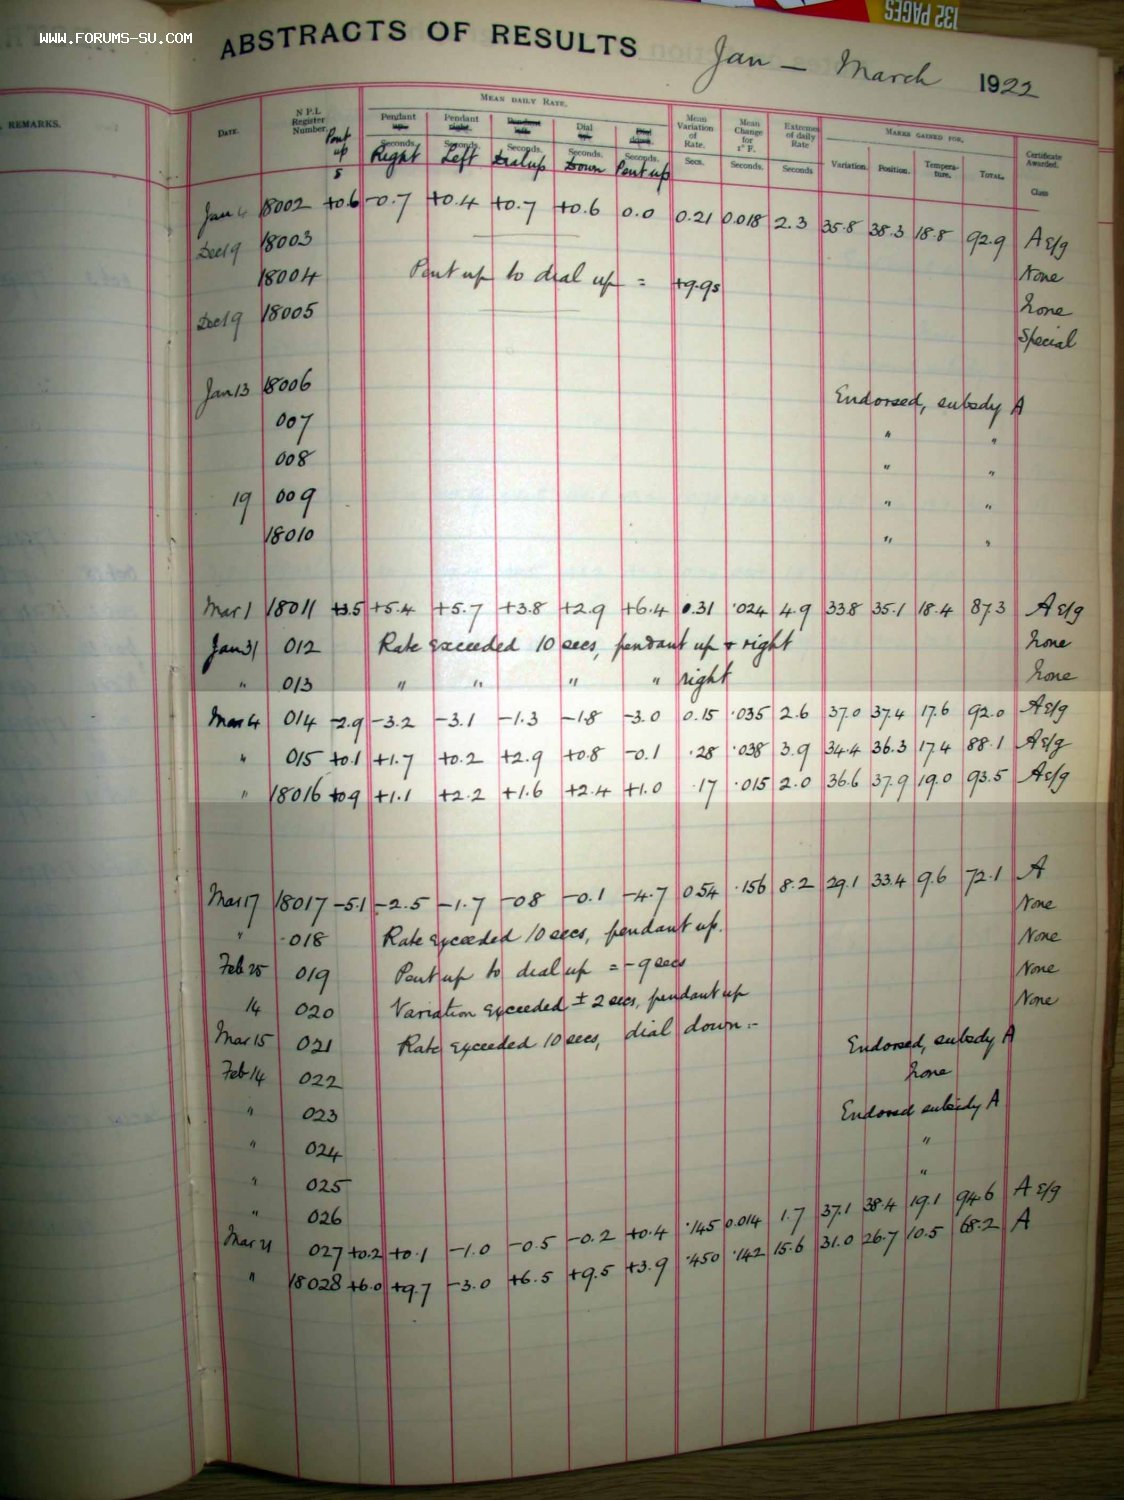 WWW.FORUMS-SU.COM
132 PAGES
ABSTRACTS OF RESULTS Jan — March 1922
REMARKS.
DATE.
N P.L Register Number.
Pent up
s
MEAN DAILY RATE.
Pendant up. Seconds. Right
Pendant right. Seconds. Left
Pendant left. Seconds. Dial up
Dial up. Seconds. Down
Dial down. Seconds. Pent up
Mean Variation of Rate. Secs.
Mean Change for 1° F. Seconds.
Extremes of daily Rate Seconds
MARKS GAINED FOR.
Variation. Position. Tempera-ture. TOTAL.
Certificate Awarded. Class
Jan 4 18002 +0.6 -0.7 +0.4 +0.7 +0.6 0.0 0.21 0.018 2.3 35.8 38.3 18.8 92.9 A e/g
Dec 19 18003 None
18004 Pent up to dial up = +9.9s None
Dec 19 18005 Special
Jan 13 18006 Endorsed, subsdy A
007 " "
008 " "
19 009 " "
18010 " "
Mar 1 18011 +3.5 +5.4 +5.7 +3.8 +2.9 +6.4 0.31 .024 4.9 33.8 35.1 18.4 87.3 A e/g
Jan 31 012 Rate exceeded 10 secs, pendant up + right None
" 013 " " " " right None
Mar 4 014 -2.9 -3.2 -3.1 -1.3 -1.8 -3.0 0.15 .035 2.6 37.0 37.4 17.6 92.0 A e/g
" 015 +0.1 +1.7 +0.2 +2.9 +0.8 -0.1 .28 .038 3.9 34.4 36.3 17.4 88.1 A e/g
" 18016 +0.9 +1.1 +2.2 +1.6 +2.4 +1.0 .17 .015 2.0 36.6 37.9 19.0 93.5 A e/g
Mar 17 18017 -5.1 -2.5 -1.7 -0.8 -0.1 -4.7 0.54 .156 8.2 29.1 33.4 9.6 72.1 A
" 018 Rate exceeded 10 secs, pendant up. None
Feb 25 019 Pent up to dial up = -9 secs None
14 020 Variation exceeded ± 2 secs, pendant up None
Mar 15 021 Rate exceeded 10 secs, dial down :- None
Feb 14 022 Endorsed, subsdy A
" 023 None
" 024 Endorsed subsidy A
" 025 "
" 026 "
Mar 21 027 +0.2 +0.1 -1.0 -0.5 -0.2 +0.4 .145 0.014 1.7 37.1 38.4 19.1 94.6 A e/g
" 18028 +6.0 +9.7 -3.0 +6.5 +9.5 +3.9 .450 .142 15.6 31.0 26.7 10.5 68.2 A